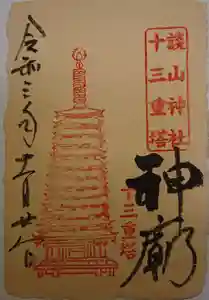 談山神社
十三重塔
神廟
十三重塔
令和二年十一月廿八日